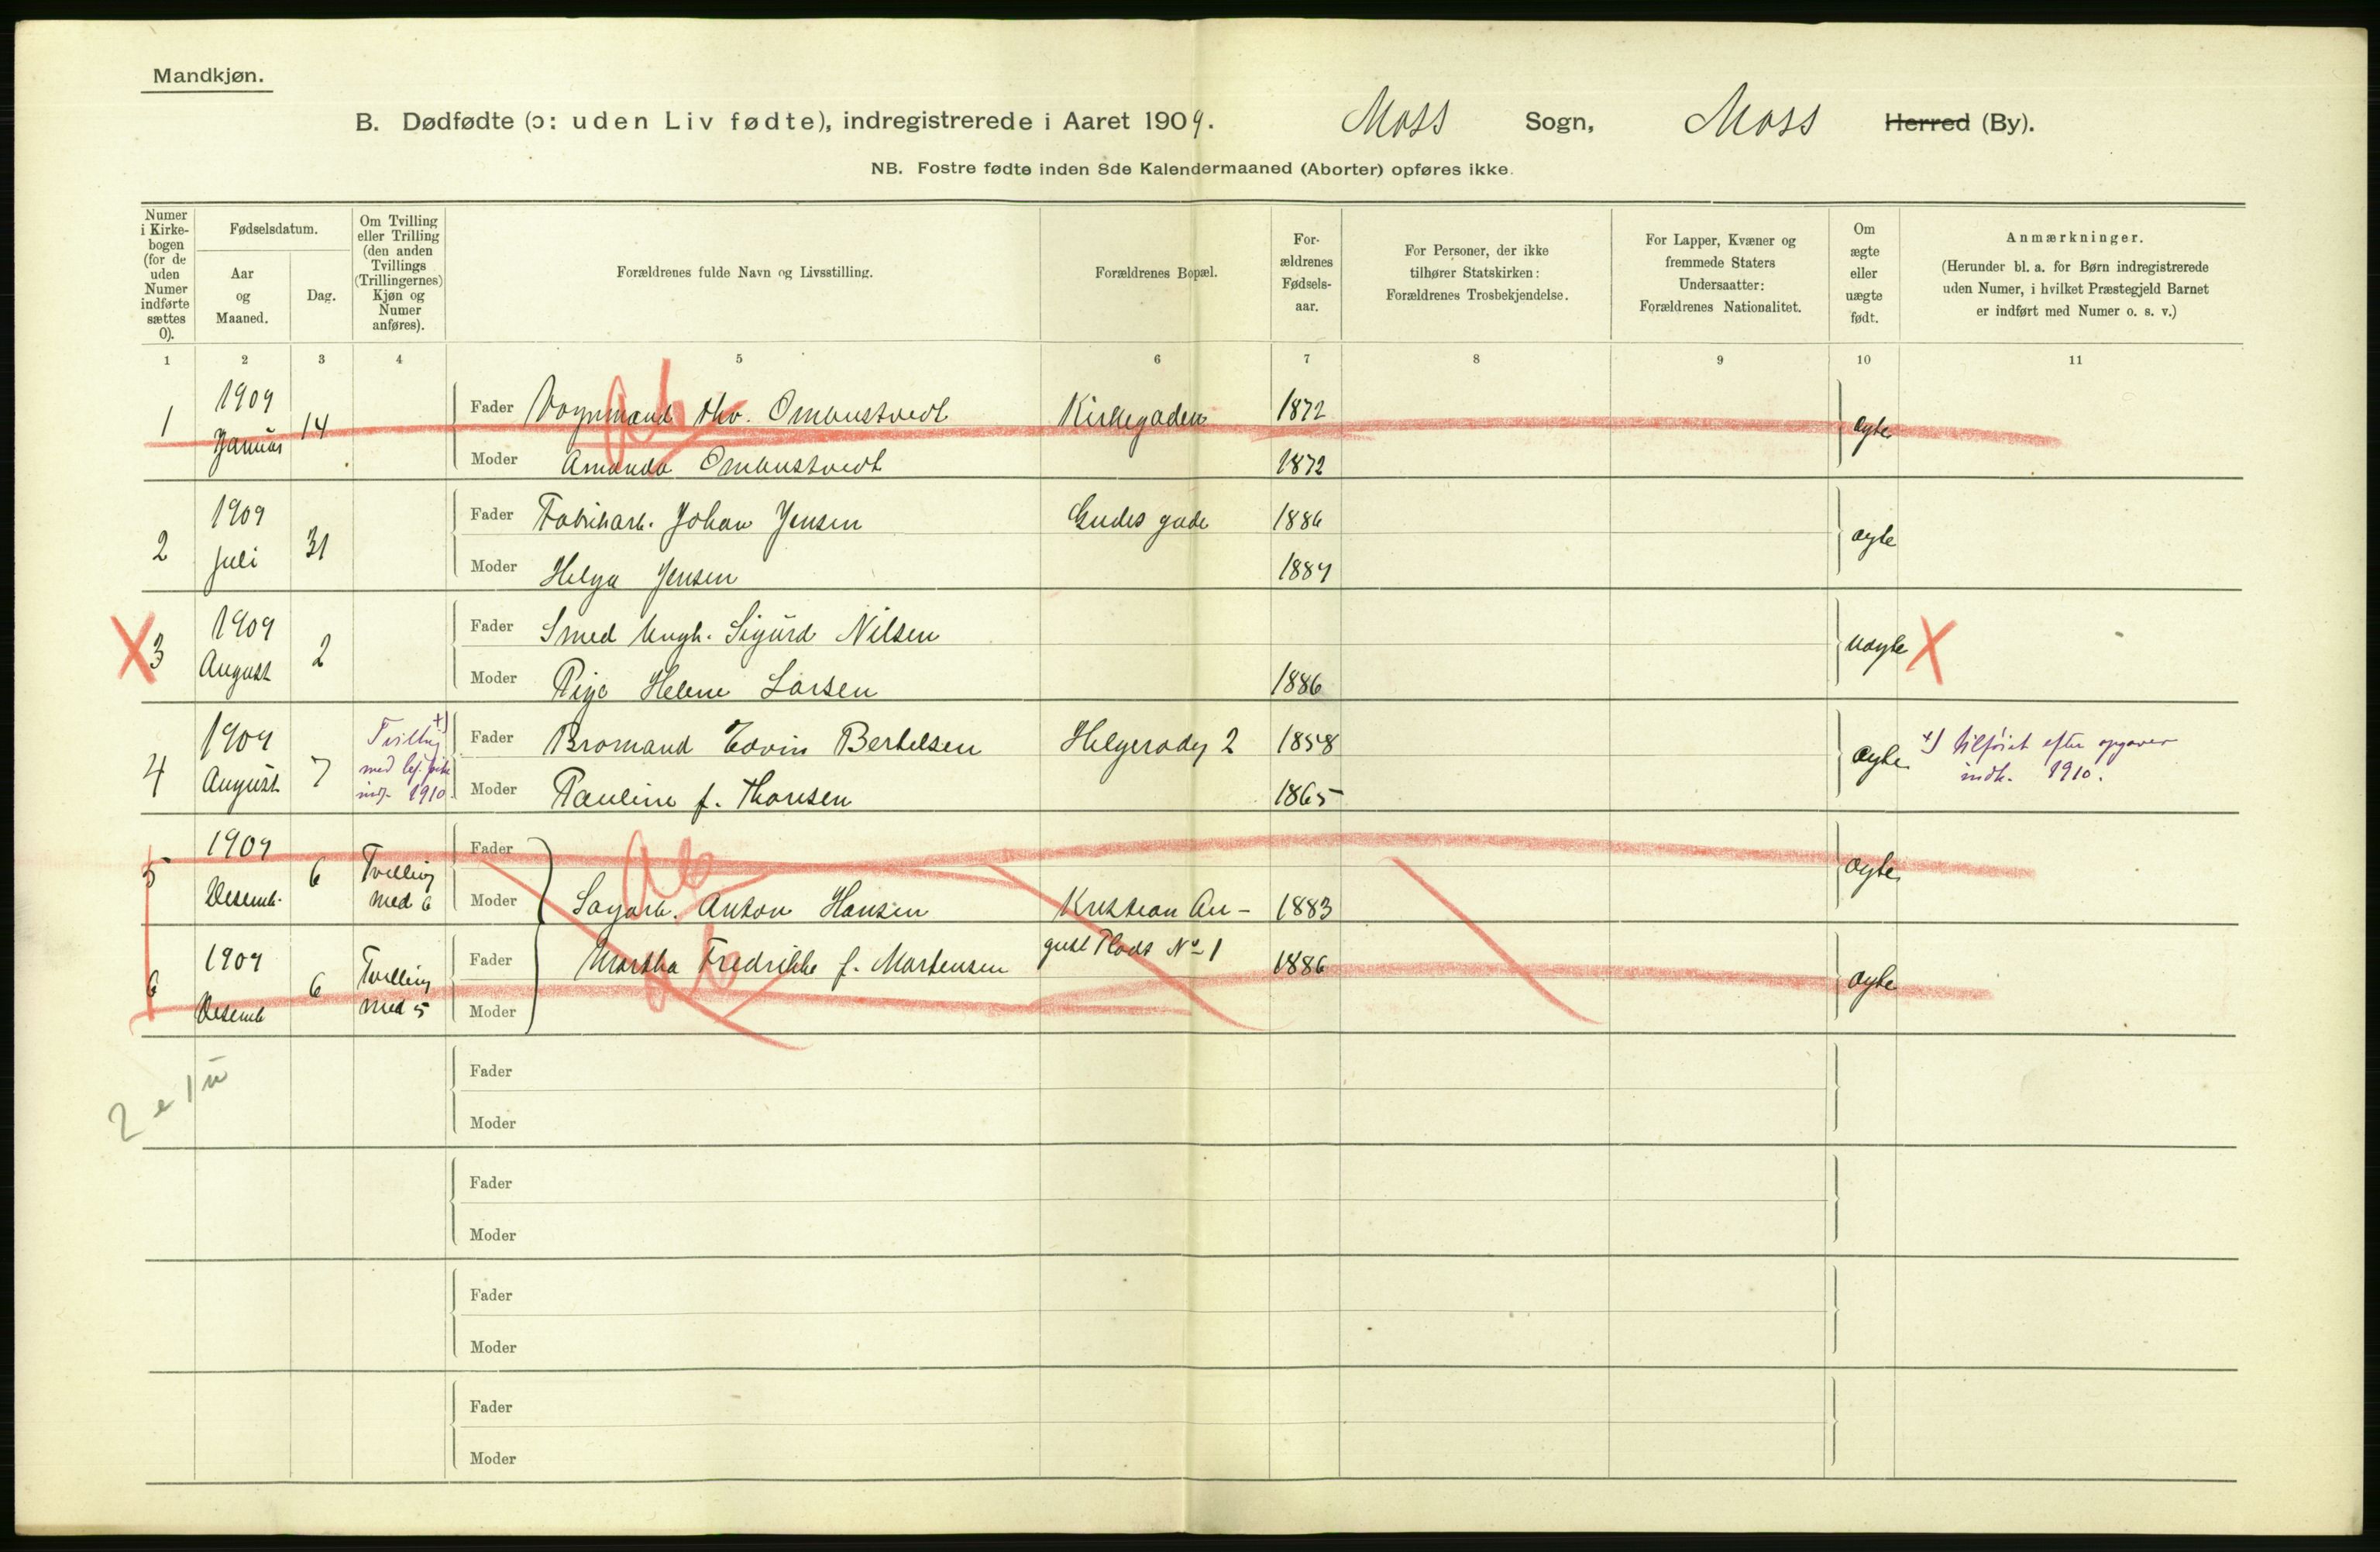 Mandkjøn.
B. Dødfødte (ɔ: uden Liv fødte), indregistrerede i Aaret 1909. Moss Sogn, Moss Herred (By).
NB. Fostre fødte inden 8de Kalendermaaned (Aborter) opføres ikke.
Numer
i Kirke-
bogen
(for de
uden
Numer
indførte
sættes
0).
Fødselsdatum.
Aar
og
Maaned.
Dag.
Om Tvilling
eller Trilling
(den anden
Tvillings
(Trillingernes)
Kjøn og
Numer
anføres).
Forældrenes fulde Navn og Livsstilling.
Forældrenes Bopæl.
For-
ældrenes
Fødsels-
aar.
For Personer, der ikke
tilhører Statskirken:
Forældrenes Trosbekjendelse.
For Lapper, Kvæner og
fremmede Staters
Undersaatter:
Forældrenes Nationalitet.
Om
ægte
eller
uægte
født.
Anmærkninger.
(Herunder bl. a. for Børn indregistrerede
uden Numer, i hvilket Præstegjeld Barnet
er indført med Numer o. s. v.)
1 2 3 4 5 6 7 8 9 10 11
1 1909 Januar 14
Fader Vognmand Ombustvedt Kirkegaden 1872 ægte
Moder Amanda Ombustvedt 1872
Ab
2 1909 Juli 31
Fader Fabrikarb. Johan Jensen Gudes gade 1886 ægte
Moder Helga Jensen 1889
X 3 1909 August 2
Fader Smed Ungk. Sigurd Nilsen uægte X
Moder Pige Helene Larsen 1886
4 1909 August 7
Tvilling +)
med
indf. 1910.
Fader Bromand Edvin Bertelsen 1858 ægte
Moder Pauline f. Thorsen 1865
+) tilføiet efter opgaver
indk. 1910.
5 1909 Desemb. 6
Tvilling
med 6
Fader
Moder Sagarb. Anton Hansen Kristian Au- 1883 ægte
Ab
6 1909 Desemb 6
Tvilling
med 5
Fader Martha Fredrikke f. Martensen gust Plads No 1 1886 ægte
Moder
Ab
2 e 1 u
Fader
Moder
Fader
Moder
Fader
Moder
Fader
Moder